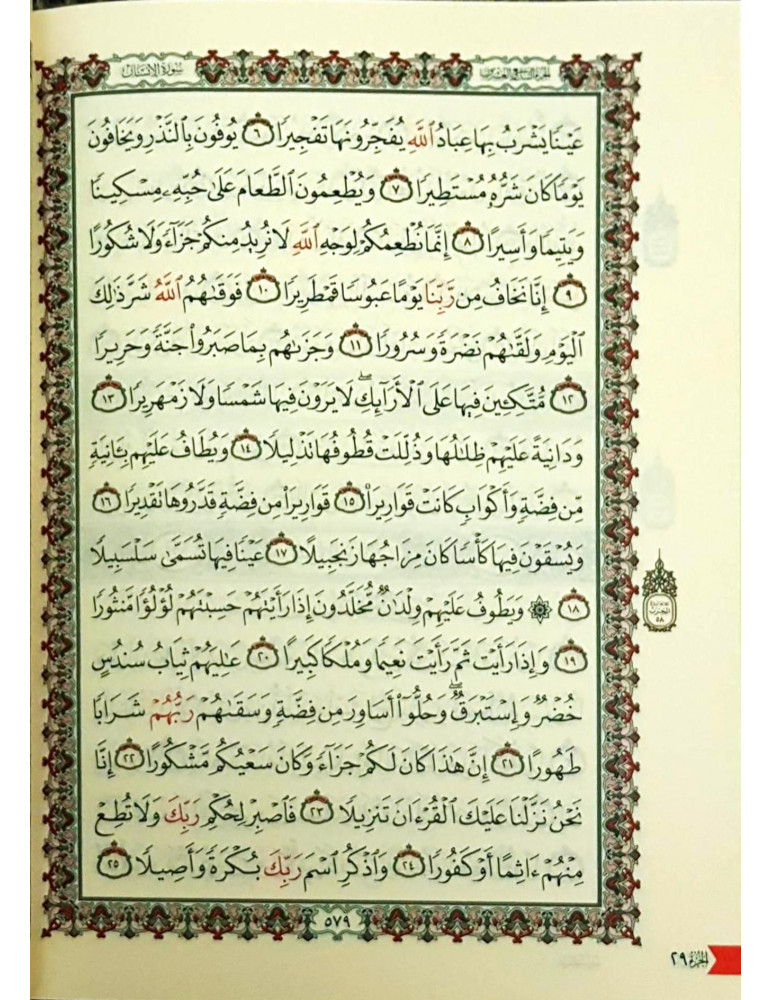 الجزء التاسع والعشرون
سورة الإنسان
عَيْنًا يَشْرَبُ بِهَا عِبَادُ ٱللَّهِ يُفَجِّرُونَهَا تَفْجِيرًا ٦ يُوفُونَ بِٱلنَّذْرِ وَيَخَافُونَ
يَوْمًا كَانَ شَرُّهُۥ مُسْتَطِيرًا ٧ وَيُطْعِمُونَ ٱلطَّعَامَ عَلَىٰ حُبِّهِۦ مِسْكِينًا
وَيَتِيمًا وَأَسِيرًا ٨ إِنَّمَا نُطْعِمُكُمْ لِوَجْهِ ٱللَّهِ لَا نُرِيدُ مِنكُمْ جَزَآءً وَلَا شُكُورًا
٩ إِنَّا نَخَافُ مِن رَّبِّنَا يَوْمًا عَبُوسًا قَمْطَرِيرًا ١٠ فَوَقَىٰهُمُ ٱللَّهُ شَرَّ ذَٰلِكَ
ٱلْيَوْمِ وَلَقَّىٰهُمْ نَضْرَةً وَسُرُورًا ١١ وَجَزَىٰهُم بِمَا صَبَرُوا۟ جَنَّةً وَحَرِيرًا
١٢ مُّتَّكِـِٔينَ فِيهَا عَلَى ٱلْأَرَآئِكِ ۖ لَا يَرَوْنَ فِيهَا شَمْسًا وَلَا زَمْهَرِيرًا ١٣
وَدَانِيَةً عَلَيْهِمْ ظِلَٰلُهَا وَذُلِّلَتْ قُطُوفُهَا تَذْلِيلًا ١٤ وَيُطَافُ عَلَيْهِم بِـَٔانِيَةٍ
مِّن فِضَّةٍ وَأَكْوَابٍ كَانَتْ قَوَارِيرَا۠ ١٥ قَوَارِيرَا۟ مِن فِضَّةٍ قَدَّرُوهَا تَقْدِيرًا ١٦
وَيُسْقَوْنَ فِيهَا كَأْسًا كَانَ مِزَاجُهَا زَنجَبِيلًا ١٧ عَيْنًا فِيهَا تُسَمَّىٰ سَلْسَبِيلًا
١٨ ۞ وَيَطُوفُ عَلَيْهِمْ وِلْدَٰنٌ مُّخَلَّدُونَ إِذَا رَأَيْتَهُمْ حَسِبْتَهُمْ لُؤْلُؤًا مَّنثُورًا
١٩ وَإِذَا رَأَيْتَ ثَمَّ رَأَيْتَ نَعِيمًا وَمُلْكًا كَبِيرًا ٢٠ عَٰلِيَهُمْ ثِيَابُ سُندُسٍ
خُضْرٌ وَإِسْتَبْرَقٌ ۖ وَحُلُّوٓا۟ أَسَاوِرَ مِن فِضَّةٍ وَسَقَىٰهُمْ رَبُّهُمْ شَرَابًا
طَهُورًا ٢١ إِنَّ هَٰذَا كَانَ لَكُمْ جَزَآءً وَكَانَ سَعْيُكُم مَّشْكُورًا ٢٢ إِنَّا
نَحْنُ نَزَّلْنَا عَلَيْكَ ٱلْقُرْءَانَ تَنزِيلًا ٢٣ فَٱصْبِرْ لِحُكْمِ رَبِّكَ وَلَا تُطِعْ
مِنْهُمْ ءَاثِمًا أَوْ كَفُورًا ٢٤ وَٱذْكُرِ ٱسْمَ رَبِّكَ بُكْرَةً وَأَصِيلًا ٢٥
٥٧٩
الحزب
٥٨
الجزء ٢٩